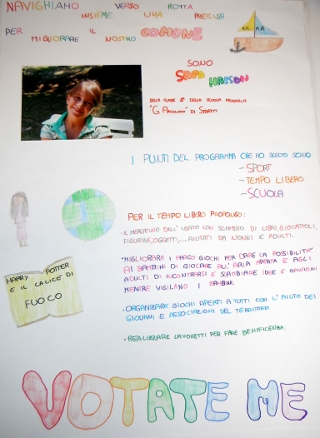 NAVIGHIAMO VERSO UNA ROTTA
INSIEME PRECISA
PER MIGLIORARE IL NOSTRO COMUNE
SONO
SARA
DELLA CLASSE DELLA SCUOLA
"G
I PUNTI DEL PROGRAMMA CHE HO SCELTO SONO
- SPORT
- TEMPO LIBERO
- SCUOLA
PER IL TEMPO LIBERO PROPONGO:
• IL MERCATINO DELL' USATO CON SCAMBIO DI LIBRI, GIOCATTOLI,
FIGURINE, OGGETTI,... AIUTATI DA NONNI E ADULTI.
• MIGLIORARE I PARCO GIOCHI PER DARE LA POSSIBILITA'
AI BAMBINI DI GIOCARE ALL' ARIA APERTA E AGLI
ADULTI DI INCONTRARSI E SCAMBIARE IDEE E OPINIONI
MENTRE VIGILANO I BAMBINI.
• ORGANIZZARE GIOCHI APERTI A TUTTI CON L' AIUTO DEI
GIOVANI E ASSOCIAZIONI DEL TERRITORIO
• REALIZZARE LAVORETTI PER FARE BENEFICENZA.
HARRY POTTER
E IL CALICE DI
FUOCO
VOTATE ME